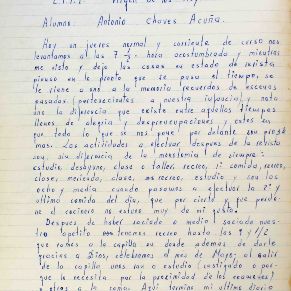 Alumno: Antonio Chaves Acuña.
Hoy un jueves normal y corriente de curso nos
levantamos a las 7 1/2 hora acostumbrada y mientras
me visto y dejo las cosas en estado de revista
pienso en lo pronto que se pasa el tiempo, se
le viene a uno a la memoria recuerdos de escenas
pasadas pertenecientes a nuestra infancia y nota
uno la diferencia que existe entre aquellos tiempos
llenos de alegria y despreocupaciones y estos en
que todo lo que se nos pone por delante son proble
mas. Las actividades a efectuar despues de la revista
son, sin diferencia de la de siempre:
estudio, desayuno, clase o taller, recreo, comida, recreo,
clase, merienda, clase, recreo, estudio y son las
ocho y media cuando pasamos a efectuar la 2ª y
ultima comida del dia, que por cierto y que perdo-
ne el cocinero no estuvo muy de mi gusto.
Despues de haber saciado o medio saciado nues-
tro apetito tenemos recreo hasta las 9 y 1/2
que vamos a la capilla en donde ademas de darle
gracias a Dios, celebramos el mes de Mayo; al salir
de la capilla unos van a estudio (castigado o por-
que lo necesita por la proximidad de los examenes)
y otros a la cama. Aqui termina mi ultimo diario